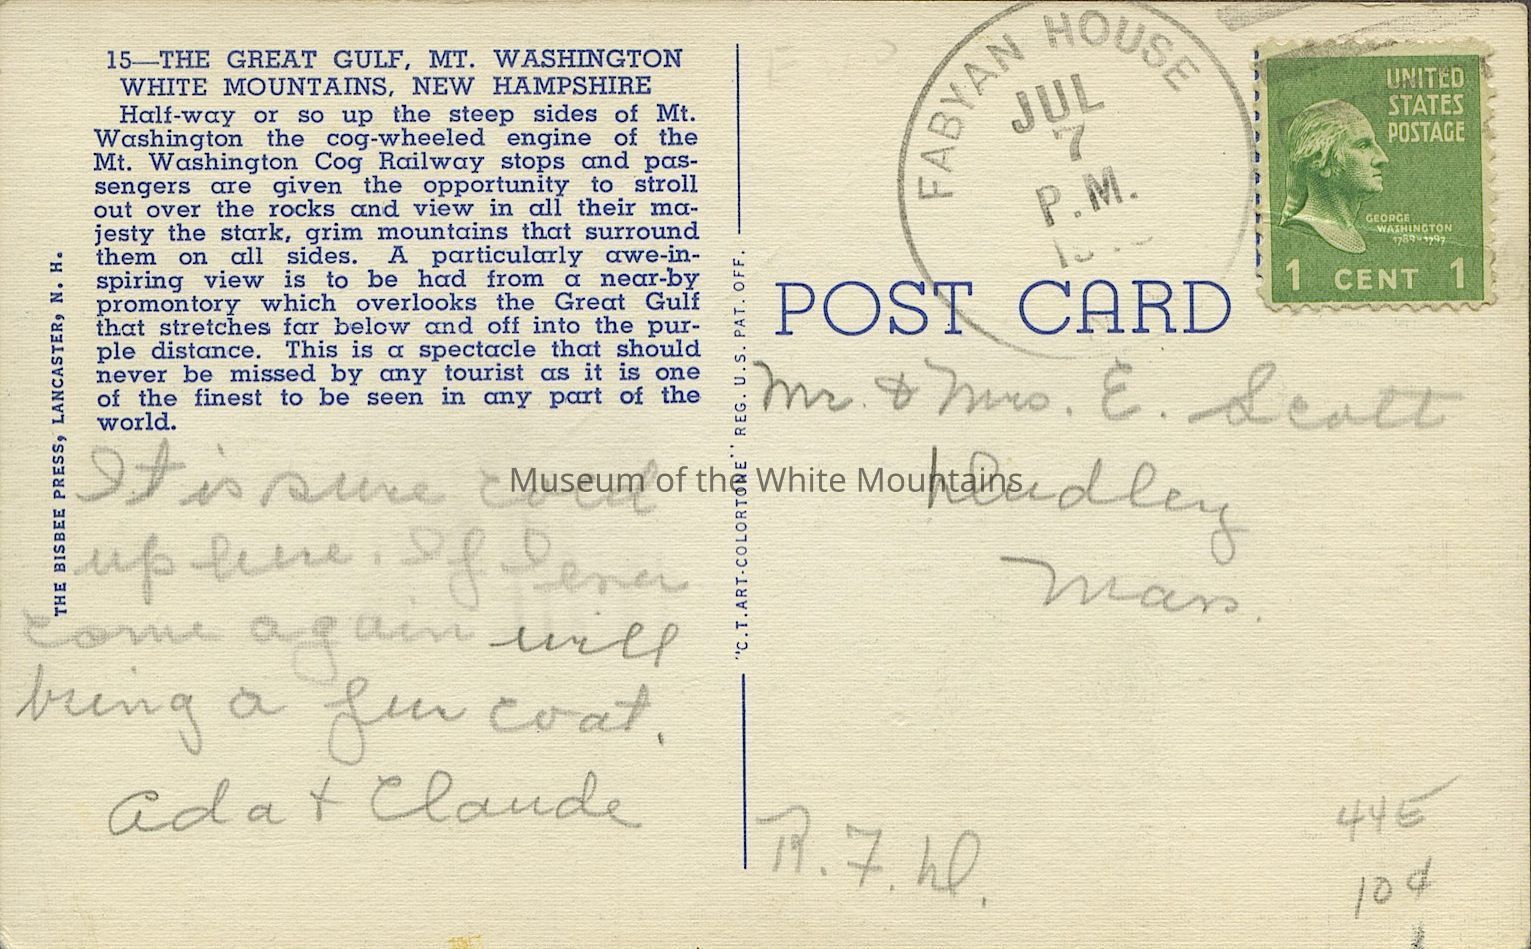 15—THE GREAT GULF, MT. WASHINGTON
WHITE MOUNTAINS, NEW HAMPSHIRE
Half-way or so up the steep sides of Mt.
Washington the cog-wheeled engine of the
Mt. Washington Cog Railway stops and pas-
sengers are given the opportunity to stroll
out over the rocks and view in all their ma-
jesty the stark, grim mountains that surround
them on all sides. A particularly awe-in-
spiring view is to be had from a near-by
promontory which overlooks the Great Gulf
that stretches far below and off into the pur-
ple distance. This is a spectacle that should
never be missed by any tourist as it is one
of the finest to be seen in any part of the
world.
It is sure cold
up here. If I ever
come again will
bring a fur coat.
Ada & Claude
THE BISBEE PRESS, LANCASTER, N. H.
"C.T.ART-COLORTONE" REG. U.S. PAT. OFF.
FABYAN HOUSE
JUL
7
P.M.
UNITED
STATES
POSTAGE
GEORGE
WASHINGTON
1789-1797
1 CENT 1
POST CARD
Mr. & Mrs. E. Scott
Dudley
Mass.
R.F.D.
44E
10¢
Museum of the White Mountains